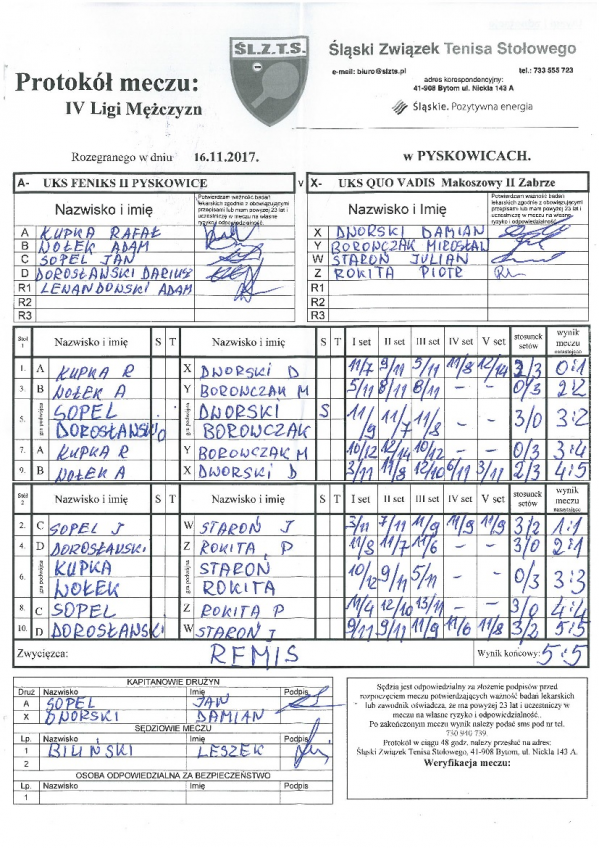 ŚL.Z.T.S.
Śląski Związek Tenisa Stołowego
e-mail: biuro@slzts.pl tel.: 733 555 723
adres korespondencyjny:
41-908 Bytom ul. Nickla 143 A
Śląskie. Pozytywna energia
Protokół meczu:
IV Ligi Mężczyzn
Rozegranego w dniu 16.11.2017. w PYSKOWICACH.
A- UKS FENIKS II PYSKOWICE v X- UKS QUO VADIS Makoszowy II Zabrze
Nazwisko i imię Potwierdzam ważność badań lekarskich zgodnie z obowiązującymi przepisami lub mam powyżej 23 lat i uczestniczę w meczu na własne ryzyko i odpowiedzialność. Nazwisko i imię Potwierdzam ważność badań lekarskich zgodnie z obowiązującymi przepisami lub mam powyżej 23 lat i uczestniczę w meczu na własne ryzyko i odpowiedzialność.
A KUPKA RAFAŁ X DWORSKI DAMIAN
B WOŁEK ADAM Y BOROWCZAK MIROSŁAW
C SOPEL JAN W STAROŃ JULIAN
D DOROSŁAWSKI DARIUSZ Z ROKITA PIOTR
R1 LEWANDOWSKI ADAM R1
R2 R2
R3 R3
Stół 1 Nazwisko i imię S T Nazwisko i imię S T I set II set III set IV set V set stosunek setów wynik meczu narastająco
1. A KUPKA R X DWORSKI D 11/7 9/11 5/11 11/8 12/14 2/3 0:1
3. B WOŁEK A Y BOROWCZAK M 5/11 8/11 8/11 - - 0/3 2:2
5. gra podwójna SOPEL DWORSKI S 11/9 11/7 11/8 - - 3/0 3:2
DOROSŁAWSKI BOROWCZAK
7. A KUPKA R Y BOROWCZAK M 10/12 12/14 10/12 - - 0/3 3:4
9. B WOŁEK A X DWORSKI D 3/11 11/8 12/10 6/11 3/11 2/3 4:5
Stół 2 Nazwisko i imię S T Nazwisko i imię S T I set II set III set IV set V set stosunek setów wynik meczu narastająco
2. C SOPEL J W STAROŃ J 3/11 7/11 11/9 11/9 11/9 3/2 1:1
4. D DOROSŁAWSKI Z ROKITA P 11/8 11/7 11/6 - - 3/0 2:1
6. gra podwójna KUPKA STAROŃ 10/12 9/11 5/11 - - 0/3 3:3
WOŁEK ROKITA
8. C SOPEL Z ROKITA P 11/4 12/10 13/11 - - 3/0 4:4
10. D DOROSŁAWSKI W STAROŃ J 9/11 9/11 11/9 11/6 11/8 3/2 5:5
Zwycięzca: REMIS Wynik końcowy: 5:5
KAPITANOWIE DRUŻYN
Druż Nazwisko Imię Podpis
A SOPEL JAN
X DWORSKI DAMIAN
SĘDZIOWIE MECZU
Lp. Nazwisko Imię Podpis
1 BILIŃSKI LESZEK
2
OSOBA ODPOWIEDZIALNA ZA BEZPIECZEŃSTWO
Lp. Nazwisko Imię Podpis
1
Sędzia jest odpowiedzialny za złożenie podpisów przed
rozpoczęciem meczu potwierdzających ważność badań lekarskich
lub zawodnik oświadcza, że ma powyżej 23 lat i uczestniczy w
meczu na własne ryzyko i odpowiedzialność.
Po zakończonym meczu wynik należy podać sms pod nr tel.
730 940 739.
Protokół w ciągu 48 godz. należy przesłać na adres:
Śląski Związek Tenisa Stołowego, 41-908 Bytom, ul. Nickla 143 A.
Weryfikacja meczu: